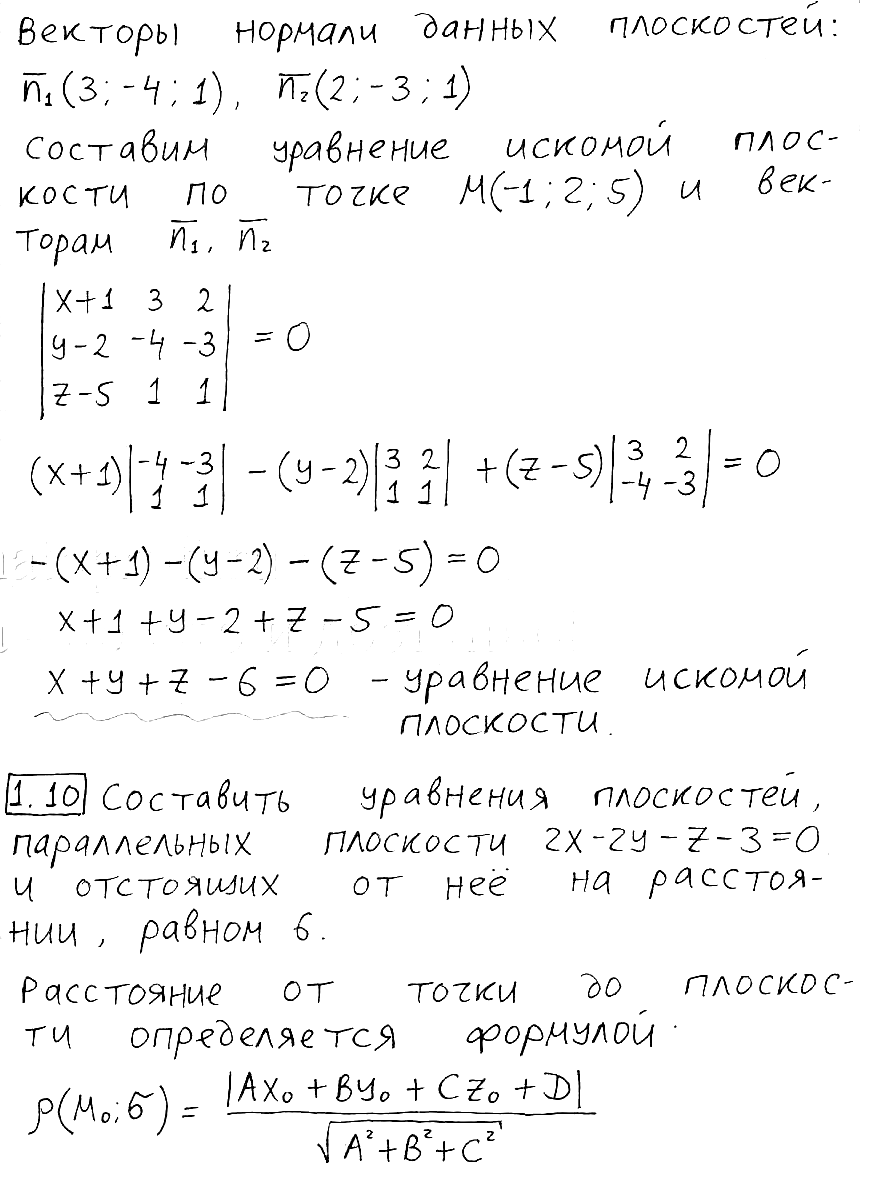 Векторы нормали данных плоскостей:
n̅₁(3; -4; 1), n̅₂(2; -3; 1)
Составим уравнение искомой плос-
кости по точке M(-1; 2; 5) и век-
торам n̅₁, n̅₂
|x+1 3 2|
|y-2 -4 -3| = 0
|z-5 1 1|
(x+1)|-4 -3; 1 1| - (y-2)|3 2; 1 1| + (z-5)|3 2; -4 -3| = 0
-(x+1) -(y-2) - (z-5) = 0
x+1+y-2+z-5 = 0
x+y+z-6=0 - уравнение искомой
плоскости.
1.10 Составить уравнения плоскостей,
параллельных плоскости 2x-2y-z-3=0
и отстоящих от неё на расстоя-
нии, равном 6.
Расстояние от точки до плоскос-
ти определяется формулой
ρ(M₀; б) = |Ax₀ + By₀ + Cz₀ + D| / √(A²+B²+C²)